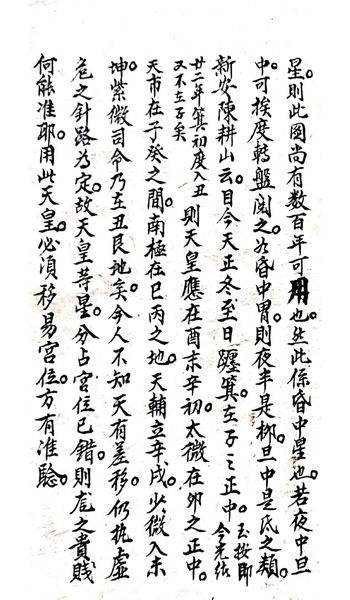 星。則此圖尚有数百年可用也。然此係昏中星也。若夜中旦
中。可挨度轉盤図之。如昏中胃。則夜半是柳。旦中是氐之類。
新安陳耕山云。目今天正冬至日躔箕。在子之正中。玉按即今光緒
廿二年箕初度入丑又不在子矣則天皇應在酉末辛初。太微在卯之正中。
天市在子癸之間。南極在巳丙之地。天輔立辛戌。少微入未
坤。紫微司令乃在丑艮地矣。今人不知天有差移。仍執虛
危之針路為定。故天皇等星。分占宮位已錯。則定之貴賤
何能准耶。用此天皇。必須移易宮位。方有准驗。